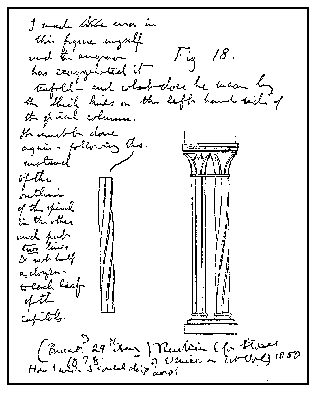 I made little error in
this figure myself
and the engraver
has exaggerated it
Fig 18.
tenfold - and what does he mean by
the thick lines on the left hand side of
the spiral column.
It must be done
again - following this.
instead
of the
outline
of the spiral
in the other
and put
two lines
& not half
a dozen
to each leaf
of the
capitals.
Ruskin (for Stones
of Venice
1850
How I wish I could